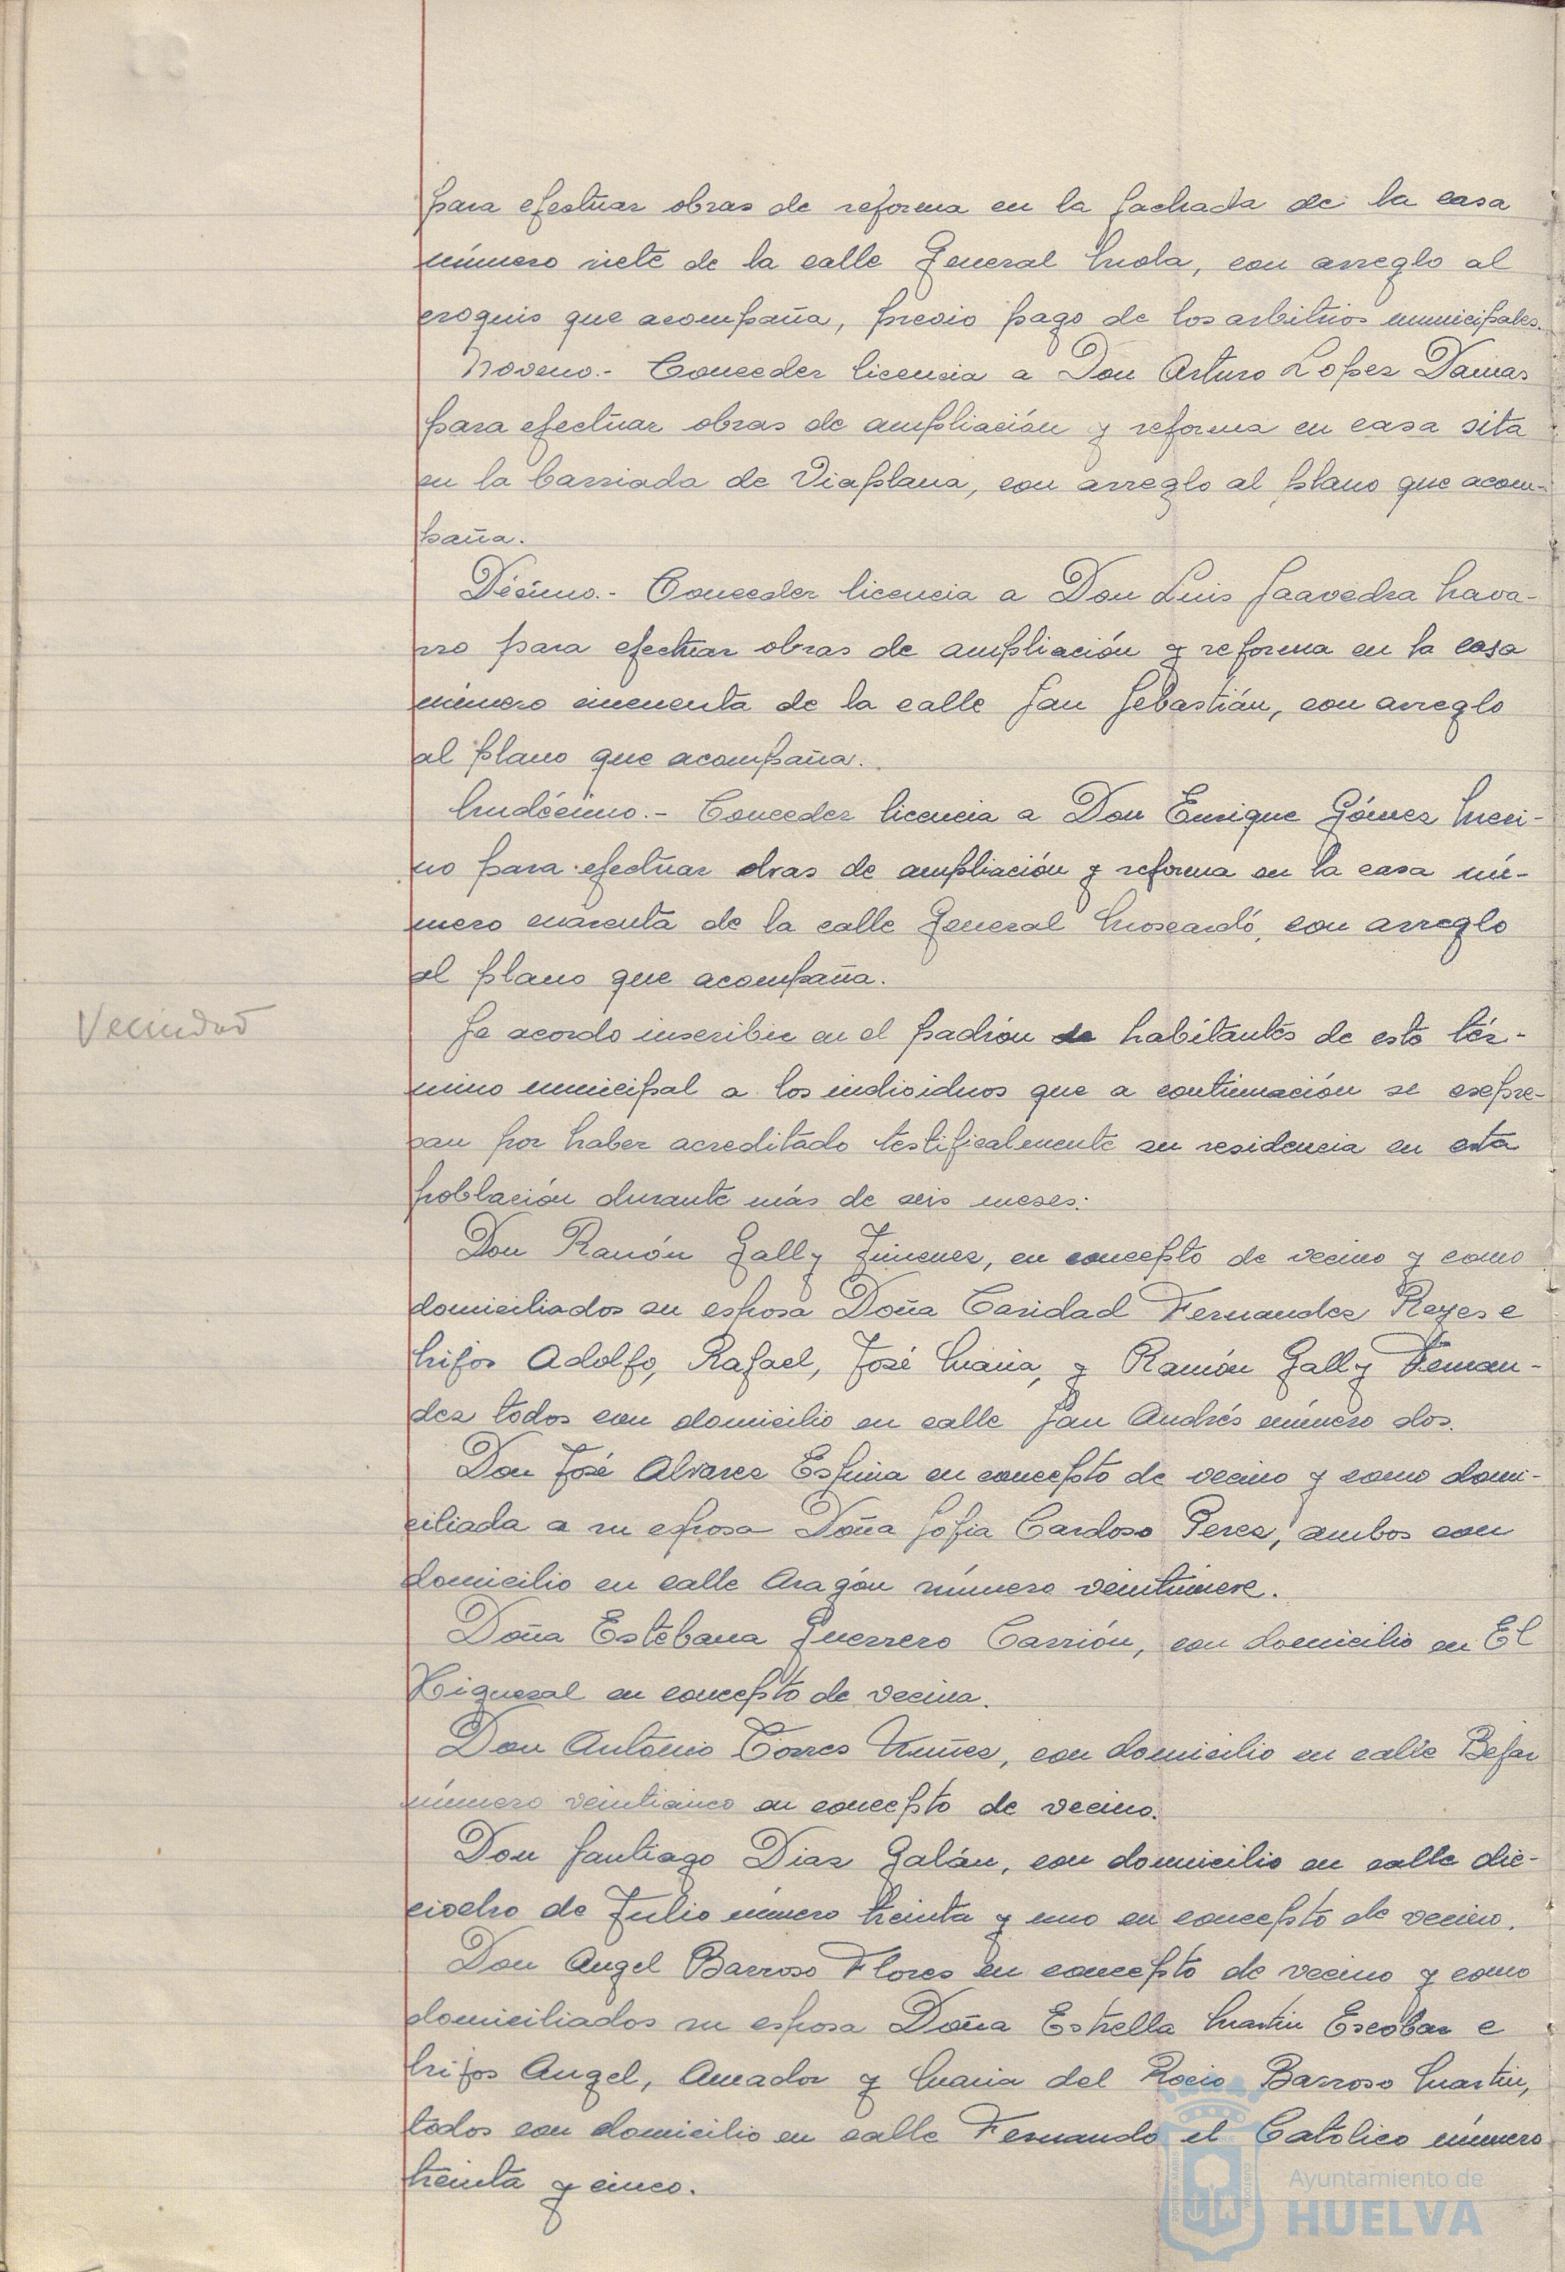 para efectuar obras de reforma en la fachada de la casa
número siete de la calle General Mola, con arreglo al
croquis que acompaña, previo pago de los arbitrios municipales.
Noveno.- Conceder licencia a Don Arturo Lopez Damas
para efectuar obras de ampliación y reforma en casa sita
en la barriada de Viaplana, con arreglo al plano que acom-
paña.
Décimo.- Conceder licencia a Don Luis Saavedra Nava-
rro para efectuar obras de ampliación y reforma en la casa
número cincuenta de la calle San Sebastián, con arreglo
al plano que acompaña.
Undécimo.- Conceder licencia a Don Enrique Gómez Meri-
no para efectuar obras de ampliación y reforma en la casa nú-
mero cuarenta de la calle General Moscardó, con arreglo
al plano que acompaña.
Vecindad
Se acordo inscribir en el padrón de habitantes de este tér-
mino municipal a los individuos que a continuación se expre-
san por haber acreditado testificalmente su residencia en esta
población durante más de seis meses:
Don Ramón Gally Jimenez, en concepto de vecino y como
domiciliados su esposa Doña Caridad Fernandez Reyes e
hijos Adolfo, Rafael, José Maria, y Ramón Gally Fernan-
dez todos con domicilio en calle San Andrés número dos.
Don José Alvarez Espina en concepto de vecino y como domi-
ciliada a su esposa Doña Sofia Cardoso Perez, ambos con
domicilio en calle Aragón número veintinueve.
Doña Estebana Guerrero Carrión, con domicilio en El
Higueral en concepto de vecina.
Don Antonio Torres Nuñez, con domicilio en calle Bejar
número veinticinco en concepto de vecino.
Don Santiago Diaz Galán, con domicilio en calle die-
ciocho de Julio número treinta y uno en concepto de vecino.
Don Angel Barroso Flores en concepto de vecino y como
domiciliados su esposa Doña Estrella Martin Escobar e
hijos Angel, Amador y Maria del Rocio Barroso Martin,
todos con domicilio en calle Fernando el Católico número
treinta y cinco.
Ayuntamiento de
HUELVA